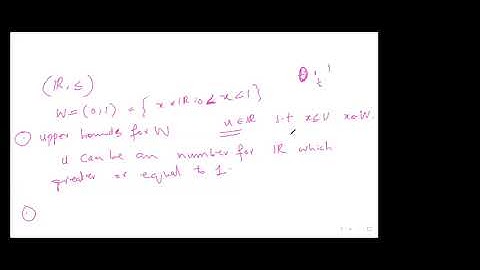 (IR, ≤)
W = (0,1) = { x ∈ IR : 0 < x < 1 }
upper bounds for W u ∈ IR s.t x ≤ U x ∈ W.
u can be an number for IR which
greater or equal to 1.